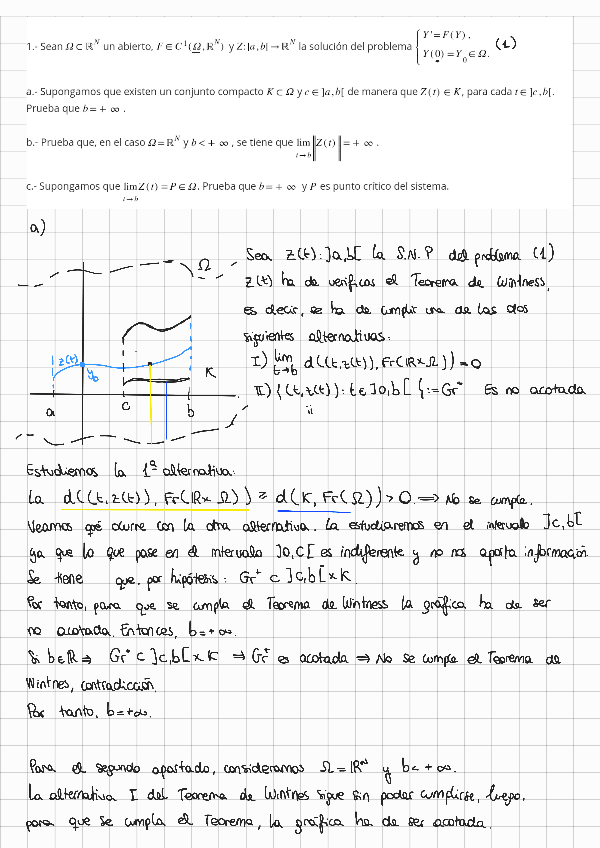 1.- Sean Ω ⊂ ℝ^N un abierto, F ∈ C^1(Ω, ℝ^N) y Z: ]a, b[ → ℝ^N la solución del problema { Y' = F(Y), (1)
Y(0) = Y_0 ∈ Ω.
a.- Supongamos que existen un conjunto compacto K ⊂ Ω y c ∈ ]a, b[ de manera que Z(t) ∈ K, para cada t ∈ ]c, b[.
Prueba que b = + ∞ .
b.- Prueba que, en el caso Ω = ℝ^N y b < + ∞ , se tiene que lim_{t→b} ‖Z(t)‖ = + ∞ .
c.- Supongamos que lim_{t→b} Z(t) = P ∈ Ω. Prueba que b = + ∞ y P es punto crítico del sistema.
a)
Ω
z(t)
y_0
K
a c b
Sea z(t): ]a,b[ la S.N.P del problema (1)
z(t) ha de verificar el Teorema de Wintness,
es decir, se ha de cumplir una de las dos
siguientes alternativas:
I) lim_{t→b} d((t,z(t)), Fr(ℝ×Ω)) = 0
II) {(t,z(t)): t∈]0,b[ } := Gr^+ Es no acotada
Estudiemos la 1ª alternativa:
La d((t,z(t)), Fr(ℝ×Ω)) ≥ d(K, Fr(Ω)) > 0. ⟹ No se cumple.
Veamos qué ocurre con la otra alternativa. La estudiaremos en el intervalo ]c,b[
ya que lo que pase en el intervalo ]0,c[ es indiferente y no nos aporta información.
Se tiene que, por hipótesis: Gr^+ ⊂ ]c,b[ × K.
Por tanto, para que se cumpla el Teorema de Wintness la gráfica ha de ser
no acotada. Entonces, b=+∞.
Si b∈ℝ ⇒ Gr^+ ⊂ ]c,b[ × K ⇒ Gr^+ es acotada ⇒ No se cumple el Teorema de
Wintnes, contradicción.
Por tanto, b=+∞.
Para el segundo apartado, consideramos Ω=ℝ^N y b<+∞.
La alternativa I del Teorema de Wintnes sigue sin poder cumplirse, luego,
para que se cumpla el Teorema, la gráfica ha de ser acotada.